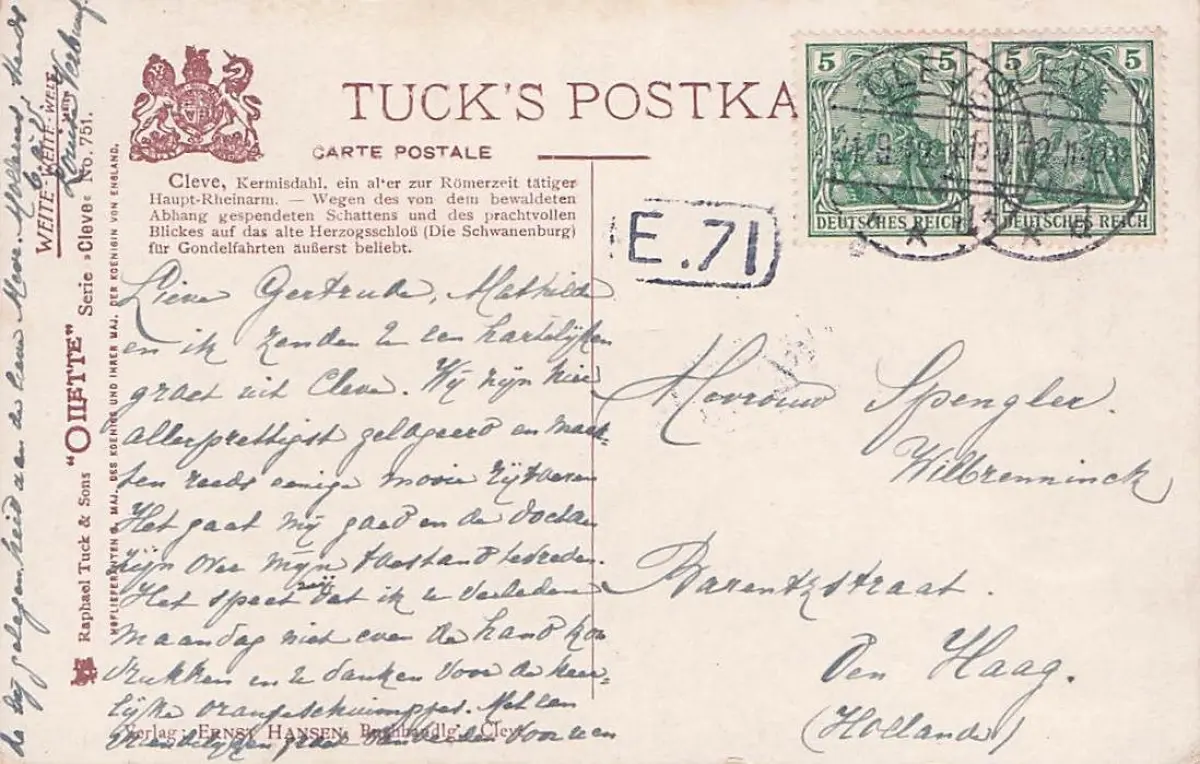 TUCK'S POSTKA
CARTE POSTALE
Cleve, Kermisdahl, ein al'er zur Römerzeit tätiger
Haupt-Rheinarm. — Wegen des von dem bewaldeten
Abhang gespendeten Schattens und des prachtvollen
Blickes auf das alte Herzogsschloß (Die Schwanenburg)
für Gondelfahrten äußerst beliebt.
5 5
DEUTSCHES REICH DEUTSCHES REICH
CLEVE CLEVE
E.71
Lieve Gertrude, Mathilde
en ik zenden U een hartelijken
groet uit Cleve. Wij zijn hier
allerprettigst gelogeerd en maak-
ten reeds eenige mooie rijtoeren
Het gaat mij goed en de doctoren
zijn over mijn toestand tevreden.
Het speet mij dat ik U verleden
maandag niet even de hand kon
drukken en U danken voor de heer-
lijke orangeschuimpjes. Met een
vriendelijken groet van beiden voor U en
de Uw
Mevrouw Spengler.
Wilbrenninck
Barentzstraat.
Den Haag.
(Holland)
Verlag: ERNST HANSEN, Buchhandlg. Cleve
WEITE-WEITE-WELT
Raphael Tuck & Sons "OILETTE" Serie »Cleve« No. 751.
HOFLIEFERANTEN S. MAJ. DES KOENIGS UND IHRER MAJ. DER KOENIGIN VON ENGLAND.